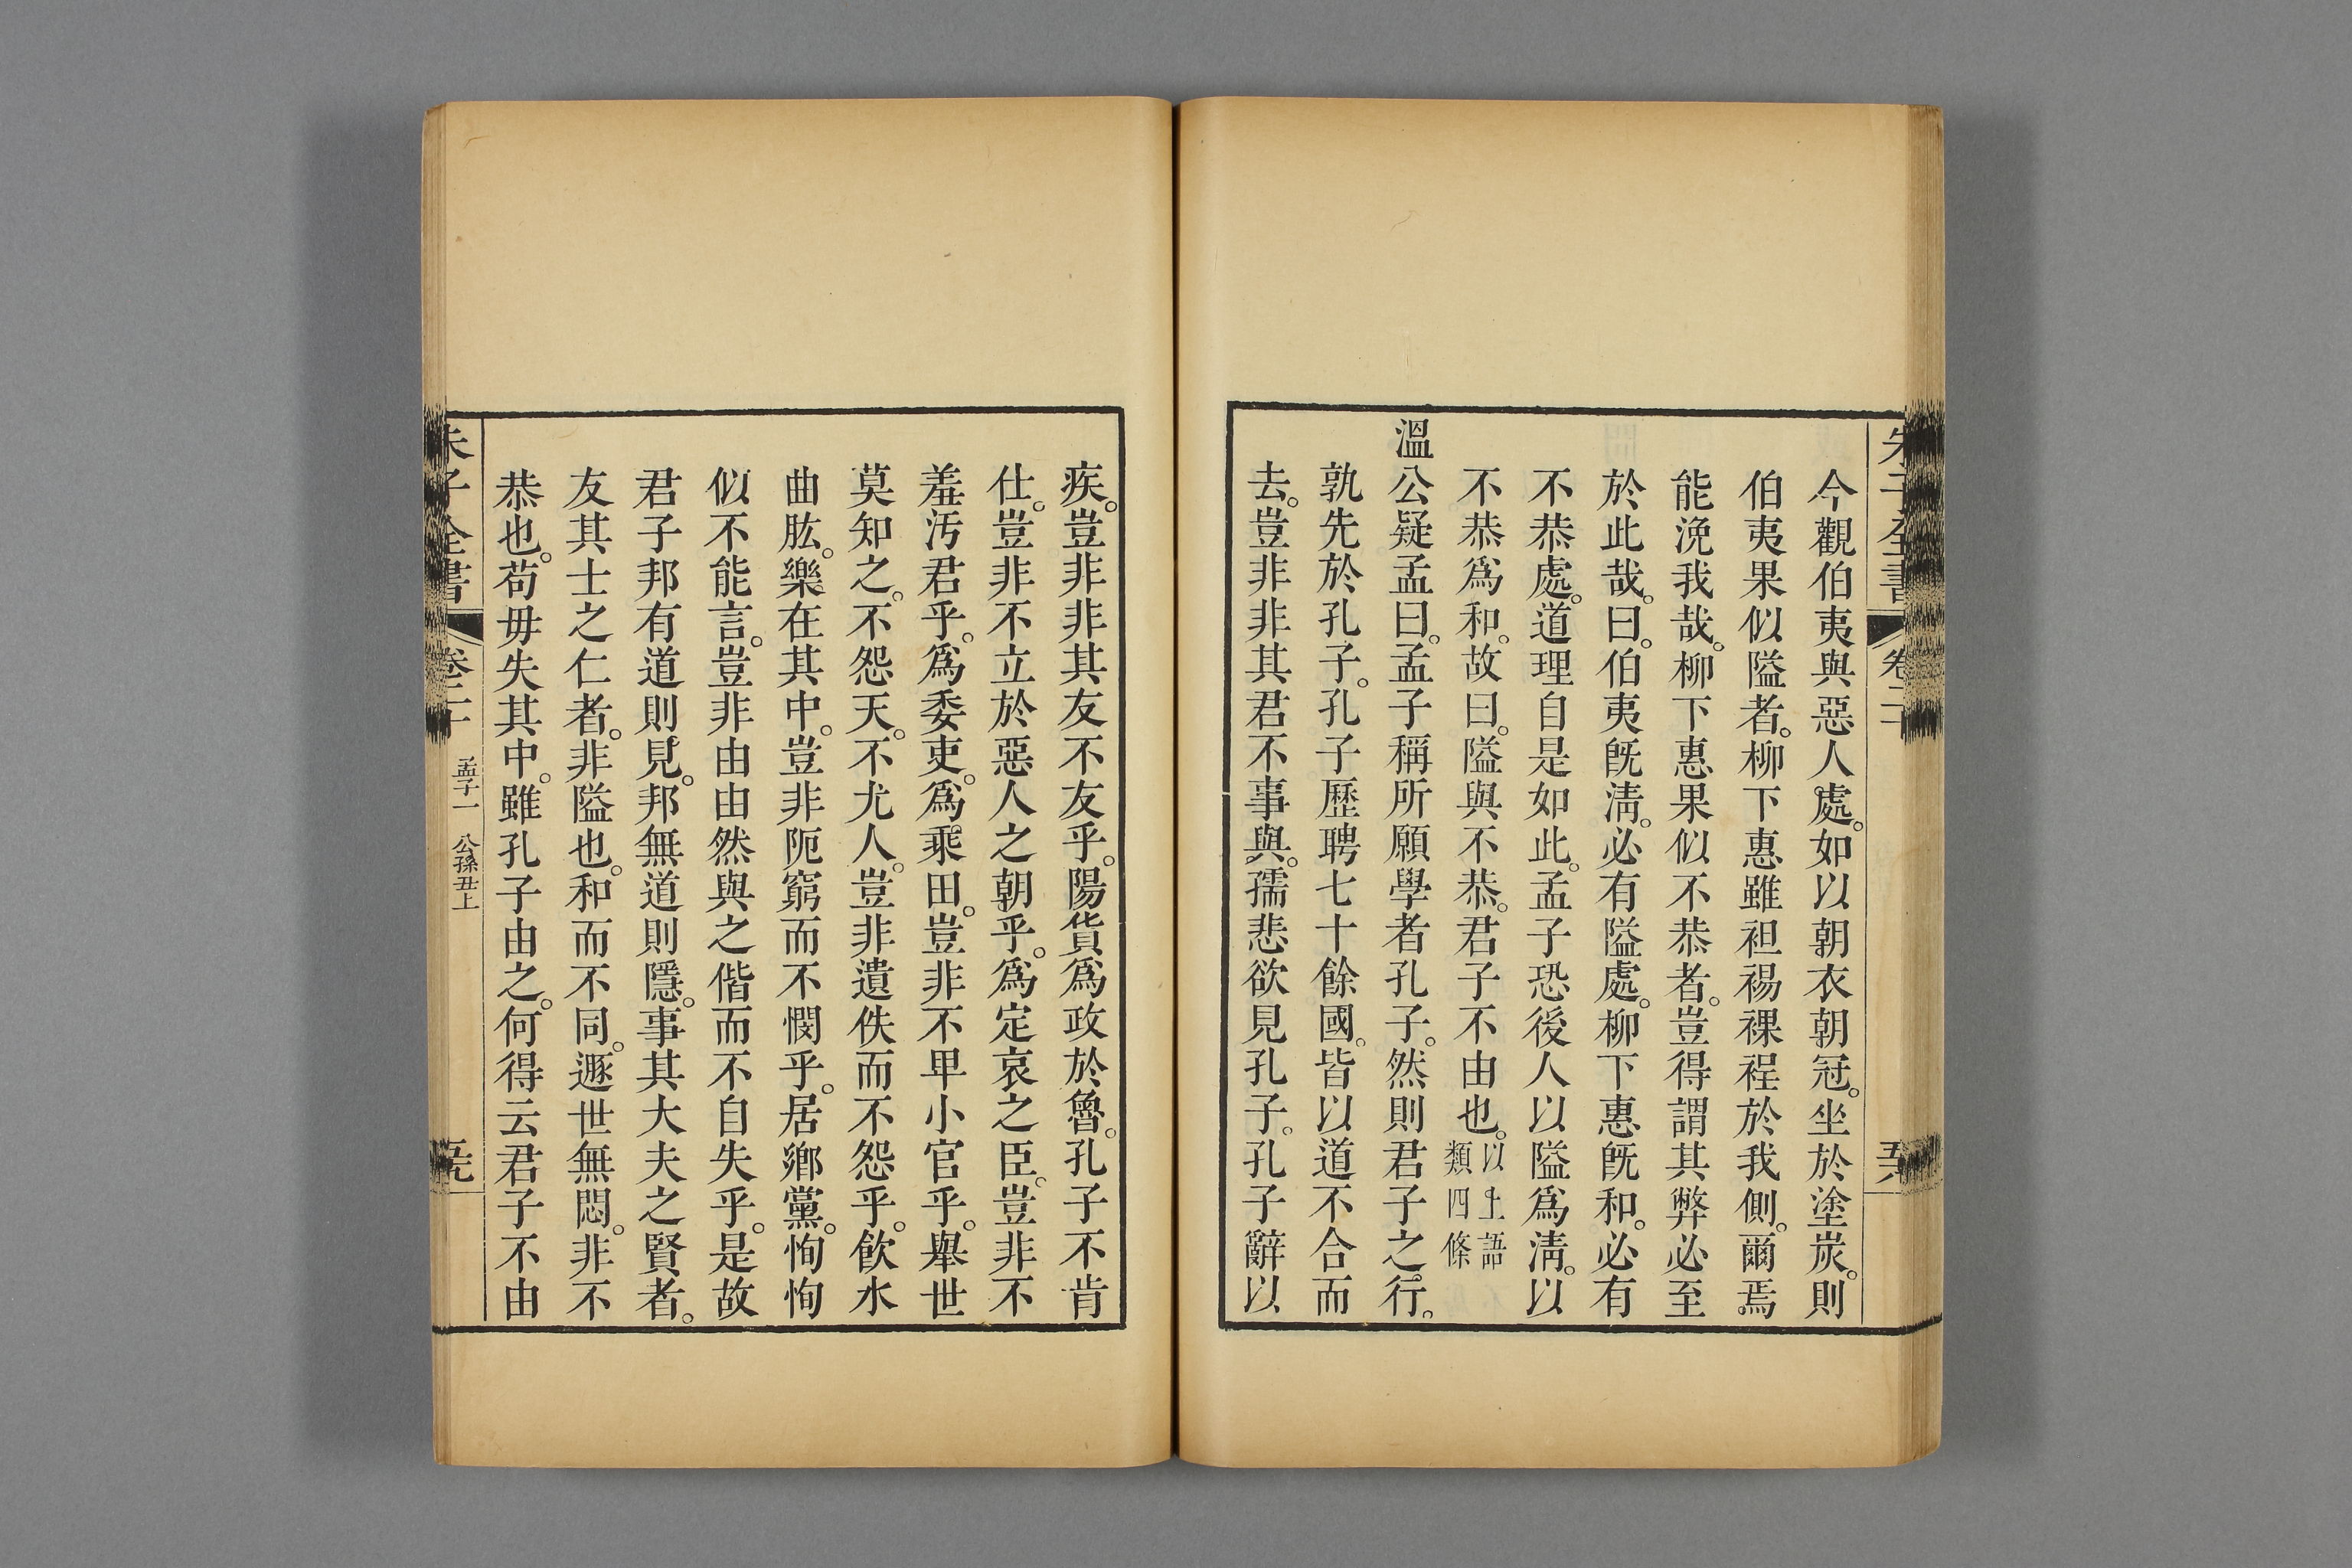 朱子全書 卷二十 五十八
今觀伯夷與惡人處。如以朝衣朝冠。坐於塗炭。則
伯夷果似隘者。柳下惠雖袒裼裸裎於我側。爾焉
能浼我哉。柳下惠果似不恭者。豈得謂其弊必至
於此哉。曰。伯夷旣淸。必有隘處。柳下惠旣和。必有
不恭處。道理自是如此。孟子恐後人以隘爲淸。以
不恭爲和。故曰。隘與不恭。君子不由也。以上語類四條
溫公疑孟曰。孟子稱所願學者孔子。然則君子之行。
孰先於孔子。孔子歷聘七十餘國。皆以道不合而
去。豈非非其君不事與。孺悲欲見孔子。孔子辭以
疾。豈非非其友不友乎。陽貨爲政於魯。孔子不肯
仕。豈非不立於惡人之朝乎。爲定哀之臣。豈非不
羞汚君乎。爲委吏。爲乘田。豈非不卑小官乎。舉世
莫知之。不怨天。不尤人。豈非遺佚而不怨乎。飮水
曲肱。樂在其中。豈非阨窮而不憫乎。居鄉黨。恂恂
似不能言。豈非由由然與之偕而不自失乎。是故
君子邦有道則見。邦無道則隱。事其大夫之賢者。
友其士之仁者。非隘也。和而不同。遯世無悶。非不
恭也。苟毋失其中。雖孔子由之。何得云君子不由
朱子全書 卷二十 孟子一 公孫丑上 五十九